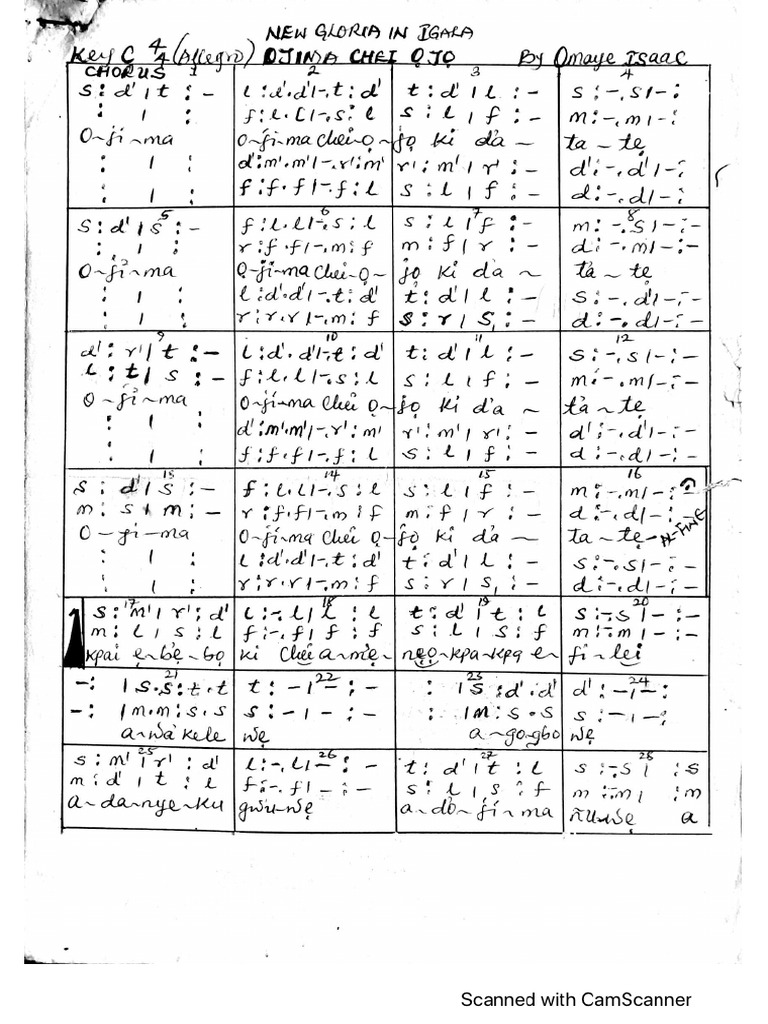 NEW GLORIA IN IGALA
Key C 4/4 (Allegro) OJIMA CHEI ỌJỌ By Omaye ISAAC
CHORUS 1 2 3 4
s : d' | t : - l : d'.d' | -.t : d' t : d' | l : - s : -.s | - :
: | : f : l.l | -.s : l s : l | f : - m : -.m | - :
O-jí-ma O-jí-ma chei Ọ-jọ ki da ta-tẹ
: | : d' : m'.m' | -.r' : m' r' : m' | r' : - d' : -.d' | - :
: | : f : f.f | -.f : l s : l | f : - d : -.d | - :
5 6 7 8
s : d' | s : - f : l.l | -.s : l s : l | f : - m : -.s | - : -
: | : r : f.f | -.m : f m : f | r : - d : -.m | - : -
O-jí-ma O-jí-ma chei Ọ-jọ ki da ~ tà-tẹ
: | : l : d'.d' | -.t : d' t : d' | l : - s : -.d' | - : -
: | : r : r.r | -.m : f s : r | s, : - d : -.d | - : -
9 10 11 12
d' : r' | t : - l : d'.d' | -.t : d' t : d' | l : - s : -.s | - : -
l : t | s : - f : l.l | -.s : l s : l | f : - m : -.m | - : -
O-jí-ma O-jí-ma chei Ọ-jọ ki da ~ tà-tẹ
: | : d' : m'.m' | -.r' : m' r' : m' | r' : - d' : -.d' | - : -
: | : f : f.f | -.f : l s : l | f : - d : -.d | - : -
13 14 15 16
s : d' | s : - f : l.l | -.s : l s : l | f : - m : -.m | - :
m : s | m : - r : f.f | -.m : f m : f | r : - d : -.d | - : -
O-ji-ma O-jí-ma chei Ọ-jọ ki da ~ ta-tẹ-
AL-FINE
: | : l : d'.d' | -.t : d' t : d' | l : - s : -.s | - : -
: | : r : r.r | -.m : f s : r | s, : - d : -.d | - : -
17 18 19 20
1 s : m' | r' : d' l : -.l | l : l t : d' | t : l s : -.s | - : -
m : l | s : l f : -.f | f : f s : l | s : f m : -.m | - : -
kpai ẹ-bẹ-bọ ki chei a-mẹ- nẹọ-kpa-kpa e- fi-lei
21 22 23 24
- : | s.s : t.t t : - | - : - : | s : d'.d' d' : - | - :
- : | m.m : s.s s : - | - : - : | m : s.s s : - | - :
a-wa kele wẹ a-go-gbo wẹ
25 26 27 28
s : m' | r' : d' l : -.l | - : - t : d' | t : l s : -.s | : s
m : d' | t : l f : -.f | - : - s : l | s : f m : -.m | : m
a-da-nye-ku gwu-wẹ a-dọ-jí-ma ñu-wẹ a
Scanned with CamScanner